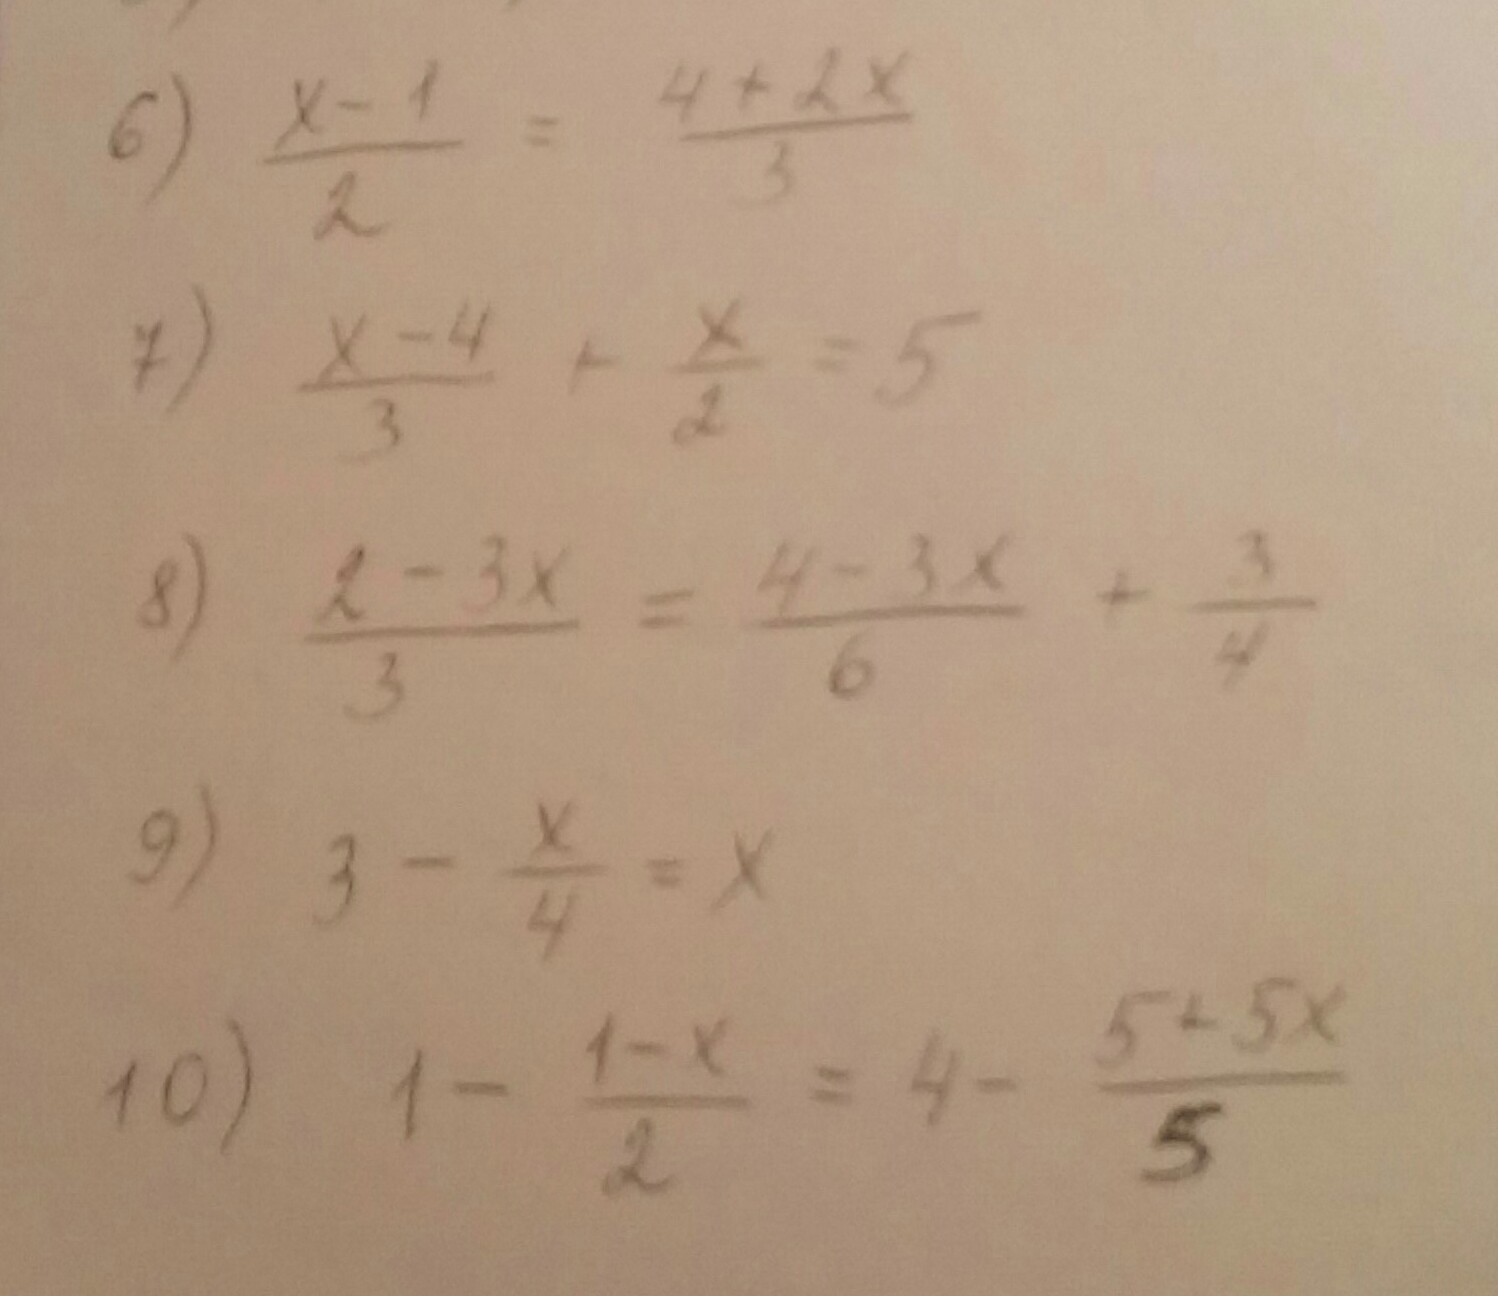 6) (x-1)/2 = (4+2x)/3
7) (x-4)/3 + x/2 = 5
8) (2-3x)/3 = (4-3x)/6 + 3/4
9) 3 - x/4 = x
10) 1 - (1-x)/2 = 4 - (5+5x)/5